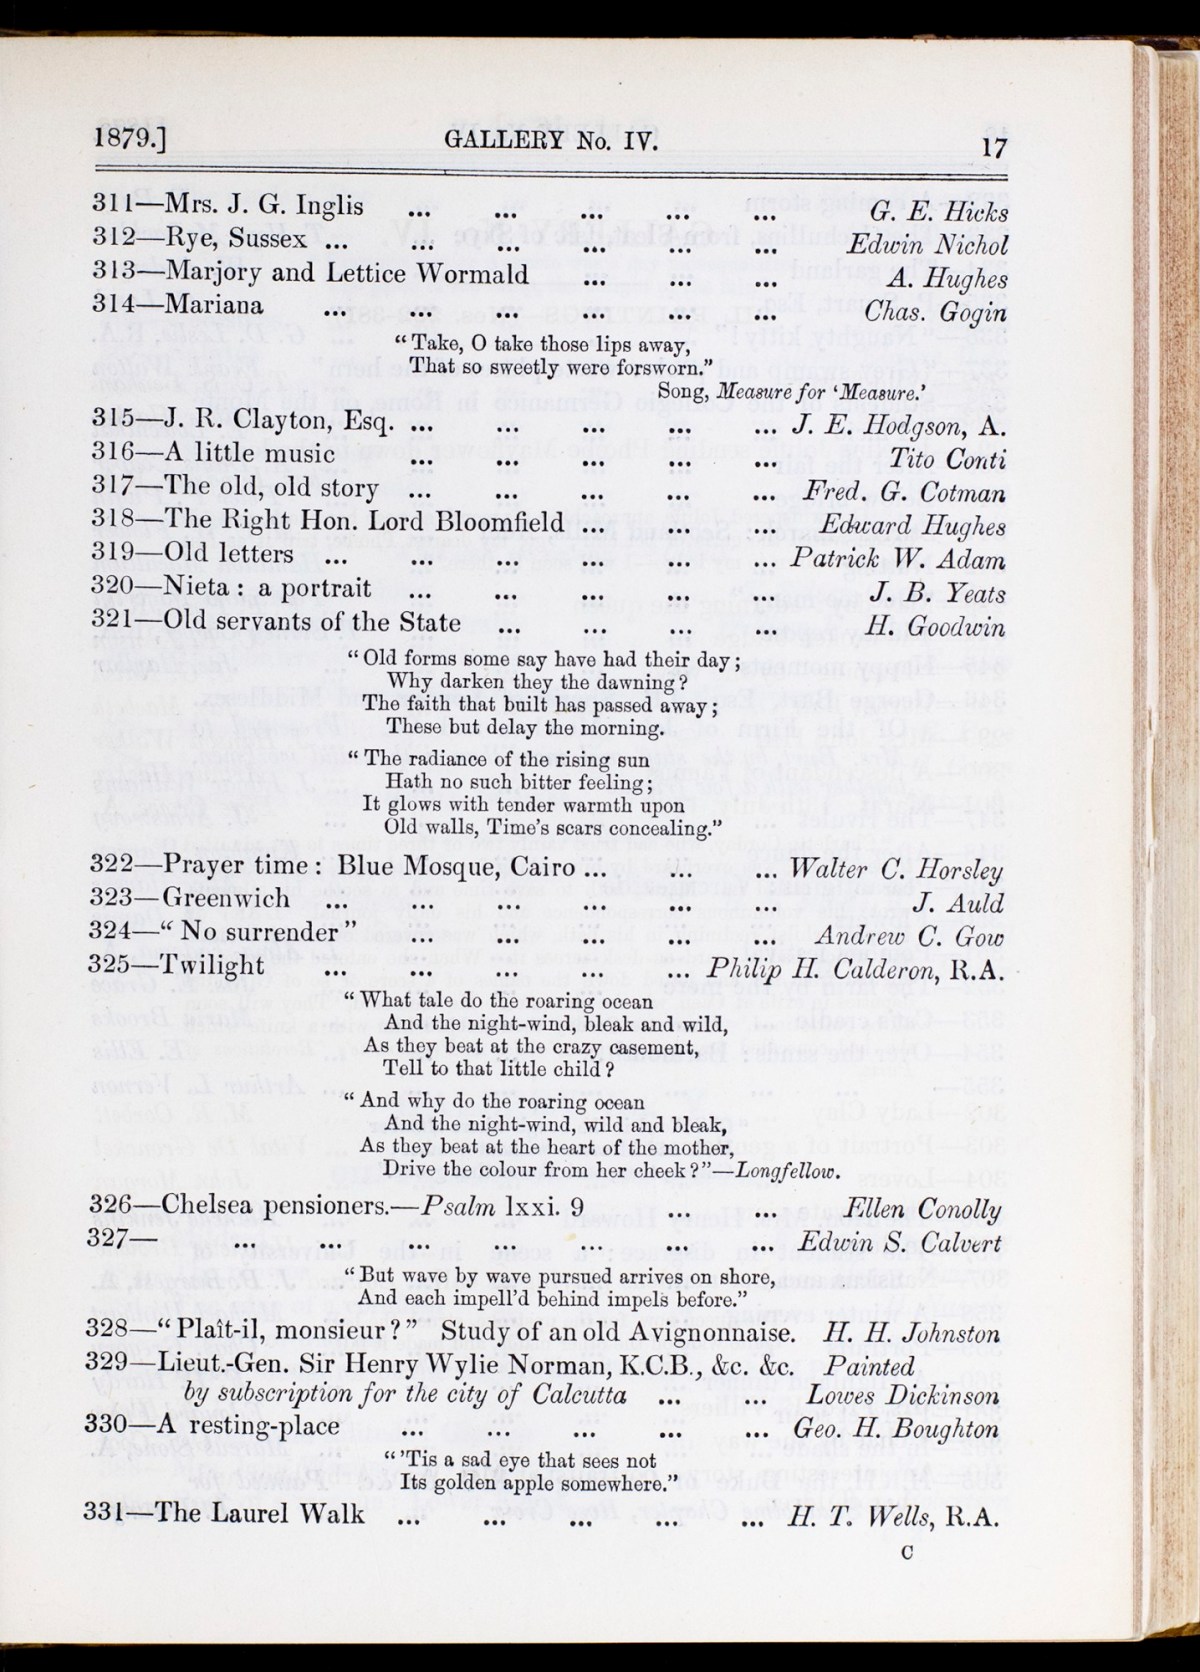 1879.] GALLERY No. IV. 17
311—Mrs. J. G. Inglis ... ... ... ... ... G. E. Hicks
312—Rye, Sussex ... ... ... ... ... ... Edwin Nichol
313—Marjory and Lettice Wormald ... ... ... A. Hughes
314—Mariana ... ... ... ... ... ... Chas. Gogin
“Take, O take those lips away,
That so sweetly were forsworn.”
Song, Measure for ‘Measure.’
315—J. R. Clayton, Esq. ... ... ... ... ... J. E. Hodgson, A.
316—A little music ... ... ... ... ... Tito Conti
317—The old, old story ... ... ... ... ... Fred. G. Cotman
318—The Right Hon. Lord Bloomfield ... ... ... Edward Hughes
319—Old letters ... ... ... ... ... ... Patrick W. Adam
320—Nieta : a portrait ... ... ... ... ... J. B. Yeats
321—Old servants of the State ... ... ... ... H. Goodwin
“Old forms some say have had their day;
Why darken they the dawning?
The faith that built has passed away;
These but delay the morning.
“The radiance of the rising sun
Hath no such bitter feeling;
It glows with tender warmth upon
Old walls, Time’s scars concealing.”
322—Prayer time : Blue Mosque, Cairo ... ... ... Walter C. Horsley
323—Greenwich ... ... ... ... ... ... J. Auld
324—“No surrender” ... ... ... ... ... Andrew C. Gow
325—Twilight ... ... ... ... ... Philip H. Calderon, R.A.
“What tale do the roaring ocean
And the night-wind, bleak and wild,
As they beat at the crazy casement,
Tell to that little child?
“And why do the roaring ocean
And the night-wind, wild and bleak,
As they beat at the heart of the mother,
Drive the colour from her cheek?”—Longfellow.
326—Chelsea pensioners.—Psalm lxxi. 9 ... ... Ellen Conolly
327— ... ... ... ... ... ... ... Edwin S. Calvert
“But wave by wave pursued arrives on shore,
And each impell’d behind impels before.”
328—“Plaît-il, monsieur?” Study of an old Avignonnaise. H. H. Johnston
329—Lieut.-Gen. Sir Henry Wylie Norman, K.C.B., &c. &c. Painted
by subscription for the city of Calcutta ... ... Lowes Dickinson
330—A resting-place ... ... ... ... ... Geo. H. Boughton
“’Tis a sad eye that sees not
Its golden apple somewhere.”
331—The Laurel Walk ... ... ... ... ... H. T. Wells, R.A.
C